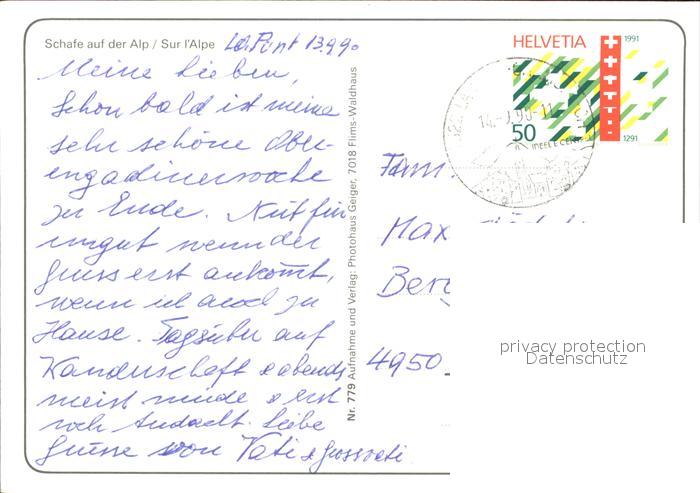 Schafe auf der Alp / Sur l'Alpe
La Punt 13.9.90
Meine Lieben,
Schon bald ist meine
sehr schöne Ober-
engadinerwoche
zu Ende. Nüt für
ungut wenn der
Gruss erst ankommt,
wenn ich auch zu
Hause. Tagsüber auf
Wanderschaft & abends
meist müde & erst
noch Andacht. Liebe
Grüsse von Vati & Grossvati
Nr. 779 Aufnahme und Verlag: Photohaus Geiger, 7018 Flims-Waldhaus
HELVETIA
1991
50
1291
14.-9.90-11
Fam.
Max
Ber
4950
privacy protection
Datenschutz